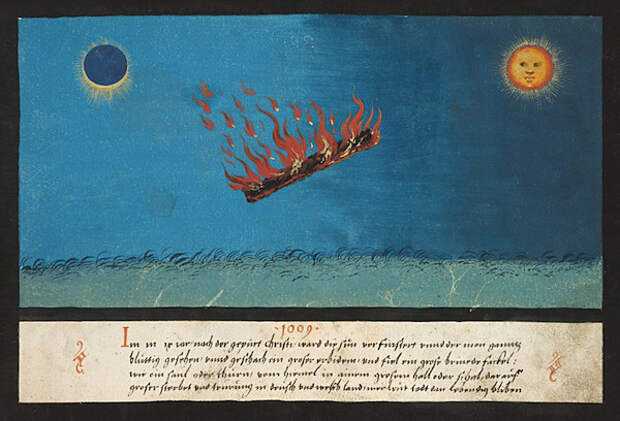 1009
Im m ix jar nach der gepurt Christi ward die sun verfinstert vnnd der mon ganntz
bluttig gesehen, vnnd geschach ein groser erdbidem, vnd fiel ein grose brinende fackel:
wie ein saul oder thurn, vom hemel in ainem grosem hall oder schal, dar auff
groser sterbet vnd teurung in deutsch vnd welsch land, mer leut todt dan lebendig bliben